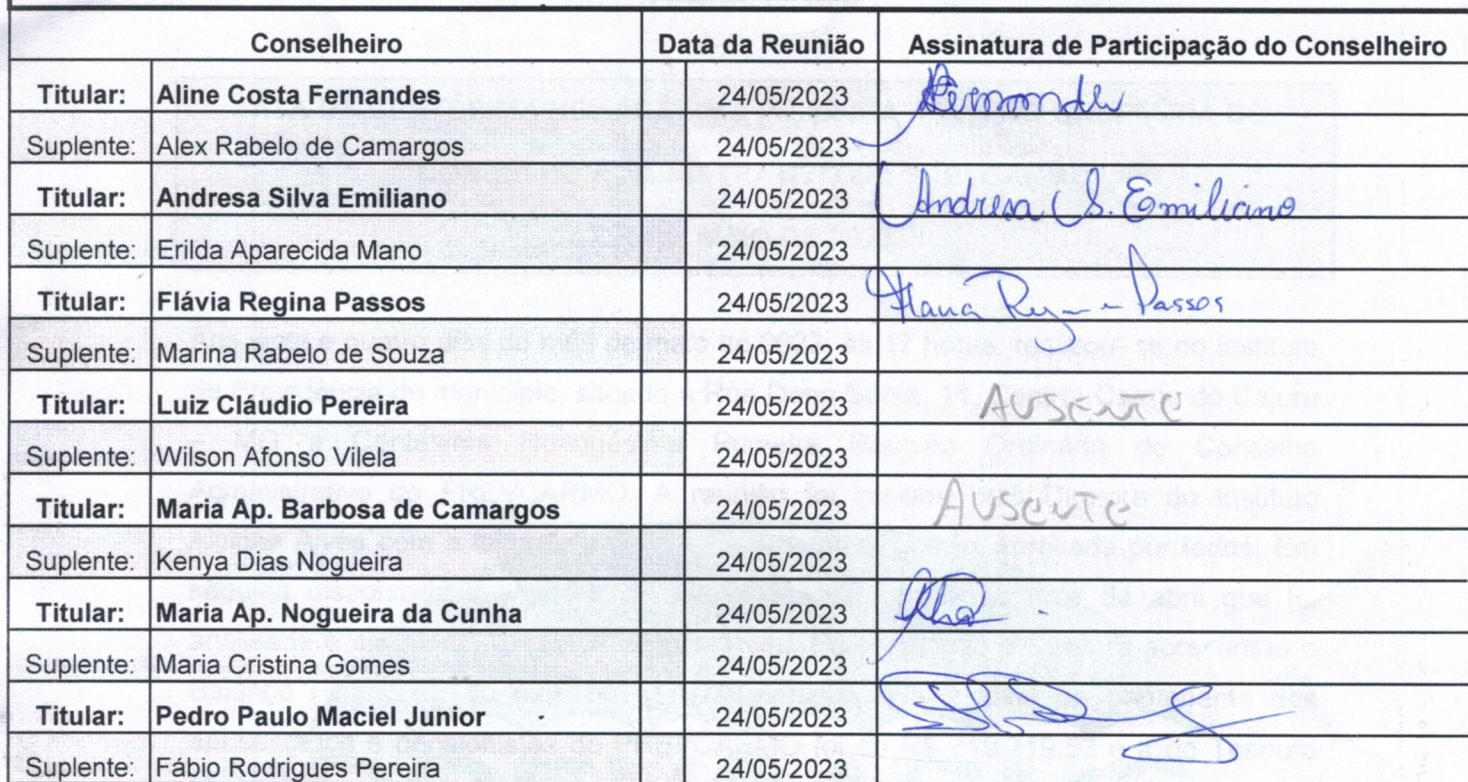 Conselheiro Data da Reunião Assinatura de Participação do Conselheiro
Titular: Aline Costa Fernandes 24/05/2023 Fernandes
Suplente: Alex Rabelo de Camargos 24/05/2023
Titular: Andresa Silva Emiliano 24/05/2023 Andresa S. Emiliano
Suplente: Erilda Aparecida Mano 24/05/2023
Titular: Flávia Regina Passos 24/05/2023 Passos
Suplente: Marina Rabelo de Souza 24/05/2023
Titular: Luiz Cláudio Pereira 24/05/2023 AUSENTE
Suplente: Wilson Afonso Vilela 24/05/2023
Titular: Maria Ap. Barbosa de Camargos 24/05/2023 AUSENTE
Suplente: Kenya Dias Nogueira 24/05/2023
Titular: Maria Ap. Nogueira da Cunha 24/05/2023
Suplente: Maria Cristina Gomes 24/05/2023
Titular: Pedro Paulo Maciel Junior 24/05/2023
Suplente: Fábio Rodrigues Pereira 24/05/2023